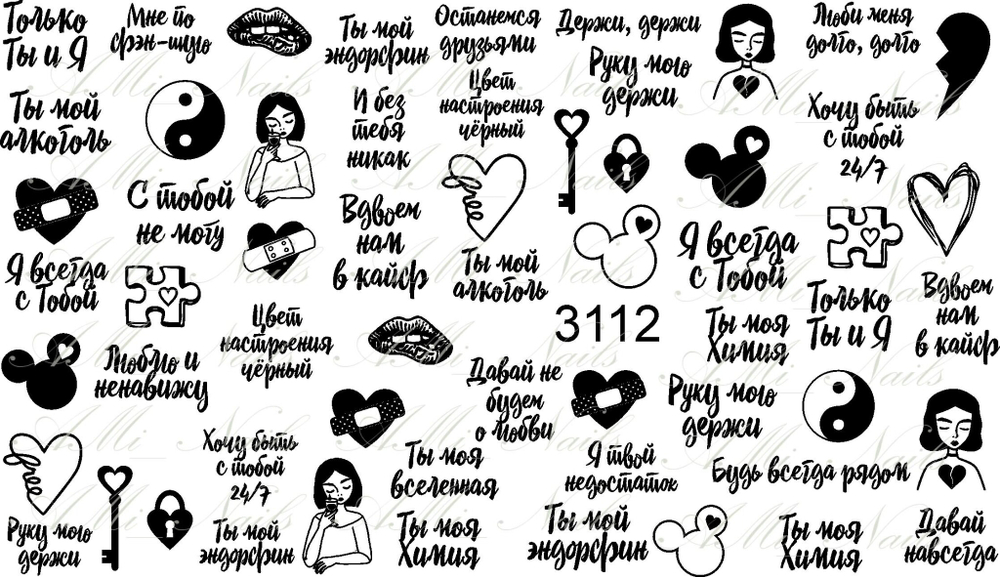 Только
Ты и Я
Мне по
фэн-шую
Ты мой
эндорфин
Останемся
друзьями
Держи, держи
Руку мою
держи
Люби меня
долго, долго
Ты мой
алкоголь
И без
тебя
никак
Цвет
настроения
чёрный
Хочу быть
с тобой
24/7
С тобой
не могу
Вдвоем
нам
в кайф
free
Ты мой
алкоголь
Я всегда
с Тобой
Я всегда
с Тобой
3112
Только
Ты и Я
Вдвоем
нам
в кайф
Цвет
настроения
чёрный
Ты моя
Химия
Люблю и
ненавижу
Давай не
будем
о любви
Руку мою
держи
free
Хочу быть
с тобой
24/7
Ты моя
вселенная
Я твой
недостаток
Будь всегда рядом
Руку мою
держи
Ты мой
эндорфин
Ты моя
Химия
Ты мой
эндорфин
Ты моя
Химия
Давай
навсегда
AMi_Nails